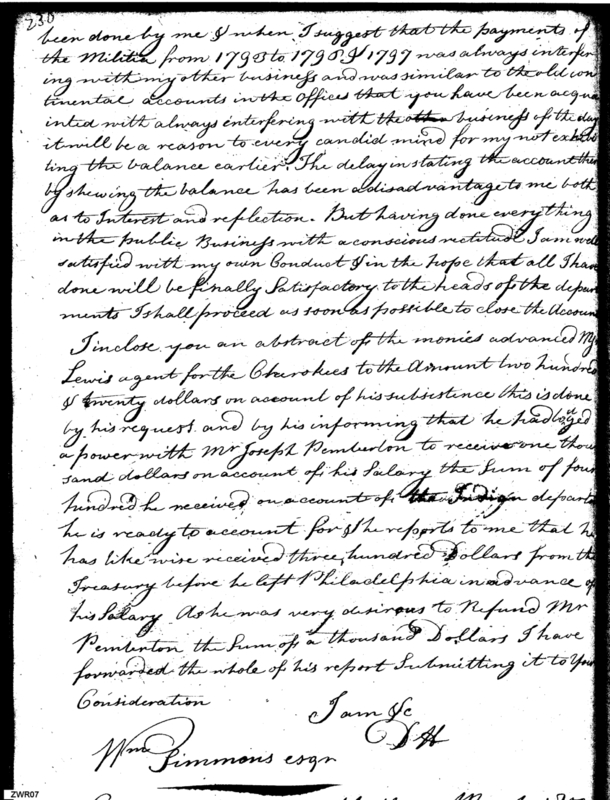 230
been done by me & when I suggest that the payments of
the Militia from 1793 to 1796 & 1797 was always interfer
ing with my other business and was similar to the old con
tinental accounts in the offices that you have been acqua
inted with always interfering with the other business of the day
it will be a reason to every candid mind for my not exhibi
ting the balance earlier. The delay in stating the account then
by shewing the balance has been a disadvantage to me both
as to Interest and reflection. But having done everything
in the public Business with a conscious rectitude I am well
satisfied with my own Conduct & in the hope that all I have
done will be finally Satisfactory to the heads of the depart
ments I shall proceed as soon as possible to close the Account
I inclose you an abstract of the monies advanced Mr
Lewis agent for the Cherokees to the Amount two hundred
& twenty dollars on account of his subsistence this is done
by his request and by his informing that he had lodged
a power with Mr Joseph Pemberton to receive one thou
sand dollars on account of his Salary the Sum of four
hundred he received on account of the Indian depart
he is ready to account for & he reports to me that he
has like wise received three hundred Dollars from the
Treasury before he left Philadelphia in advance of
his Salary As he was very desirous to Refund Mr
Pemberton the Sum of a thousand Dollars I have
forwarded the whole of his report Submitting it to Your
Consideration
I am &c
D H
Wm Simmons esqr
ZWR07